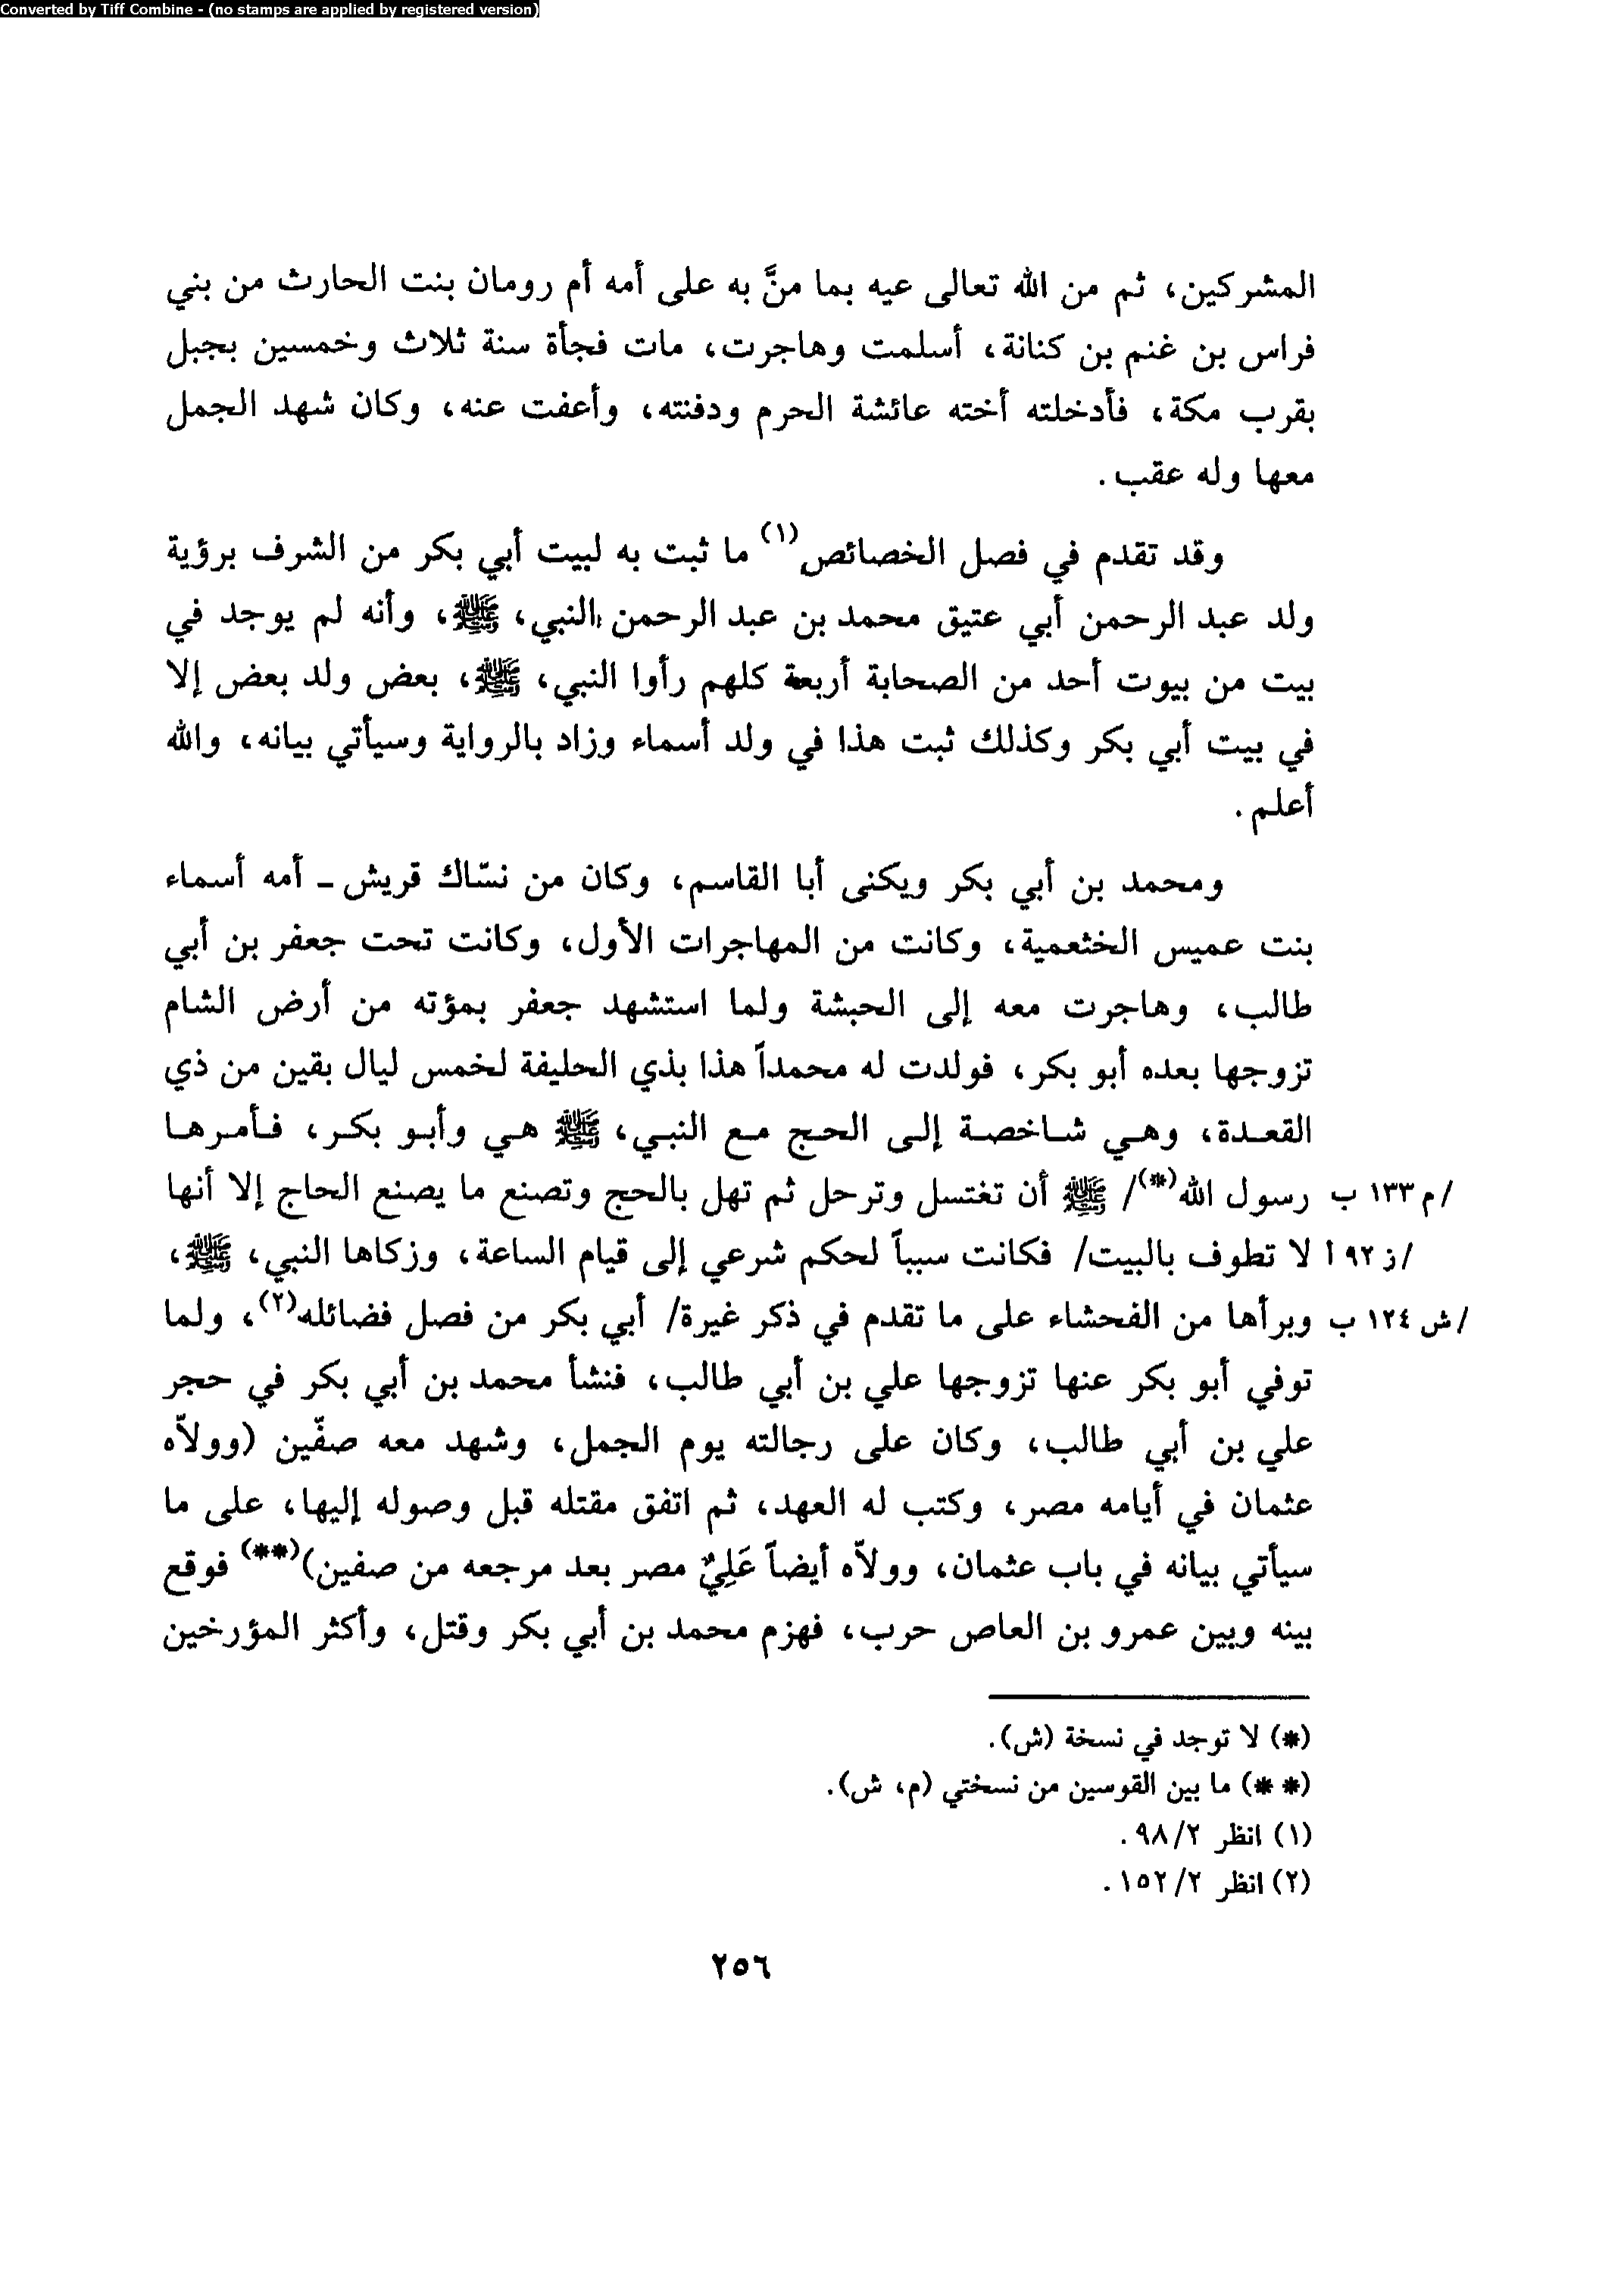 Converted by Tiff Combine - (no stamps are applied by registered version)
المشركين، ثم من الله تعالى عيه بما منَّ به على أمه أم رومان بنت الحارث من بني
فراس بن غنم بن كنانة، أسلمت وهاجرت، مات فجأة سنة ثلاث وخمسين بجبل
بقرب مكة، فأدخلته أخته عائشة الحرم ودفنته، وأعفت عنه، وكان شهد الجمل
معها وله عقب.
وقد تقدم في فصل الخصائص(١) ما ثبت به لبيت أبي بكر من الشرف برؤية
ولد عبد الرحمن أبي عتيق محمد بن عبد الرحمن النبي، ﷺ، وأنه لم يوجد في
بيت من بيوت أحد من الصحابة أربعة كلهم رأوا النبي، ﷺ، بعض ولد بعض إلا
في بيت أبي بكر وكذلك ثبت هذا في ولد أسماء وزاد بالرواية وسيأتي بيانه، والله
أعلم.
ومحمد بن أبي بكر ويكنى أبا القاسم، وكان من نسّاك قريش ـ أمه أسماء
بنت عميس الخثعمية، وكانت من المهاجرات الأول، وكانت تحت جعفر بن أبي
طالب، وهاجرت معه إلى الحبشة ولما استشهد جعفر بمؤته من أرض الشام
تزوجها بعده أبو بكر، فولدت له محمداً هذا بذي الحليفة لخمس ليال بقين من ذي
القعدة، وهي شاخصة إلى الحج مع النبي، ﷺ هي وأبو بكر، فأمرها
/م ١٣٣ ب رسول الله(*)/ ﷺ أن تغتسل وترحل ثم تهل بالحج وتصنع ما يصنع الحاج إلا أنها
/ز ٩٢ أ لا تطوف بالبيت/ فكانت سبباً لحكم شرعي إلى قيام الساعة، وزكاها النبي، ﷺ،
/ش ١٢٤ ب وبرأها من الفحشاء على ما تقدم في ذكر غيرة/ أبي بكر من فصل فضائله(٢)، ولما
توفي أبو بكر عنها تزوجها علي بن أبي طالب، فنشأ محمد بن أبي بكر في حجر
علي بن أبي طالب، وكان على رجالته يوم الجمل، وشهد معه صفّين (وولاّه
عثمان في أيامه مصر، وكتب له العهد، ثم اتفق مقتله قبل وصوله إليها، على ما
سيأتي بيانه في باب عثمان، وولاّه أيضاً عَلِيٌ مصر بعد مرجعه من صفين)(**) فوقع
بينه وبين عمرو بن العاص حرب، فهزم محمد بن أبي بكر وقتل، وأكثر المؤرخين
(*) لا توجد في نسخة (ش).
(* *) ما بين القوسين من نسختي (م، ش).
(١) انظر ٩٨/٢.
(٢) انظر ١٥٢/٢.
٢٥٦